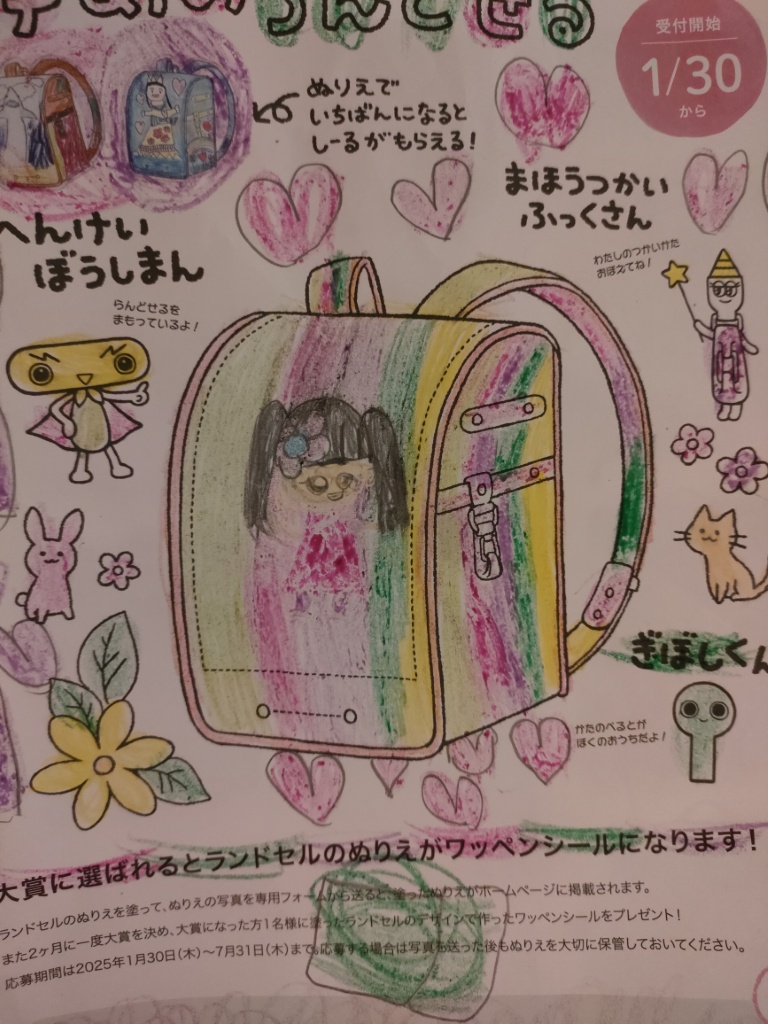 らんどせる
受付開始
1/30
から
ぬりえで
いちばんになると
しーるがもらえる!
まほうつかい
ふっくさん
わたしのつかいかた
おぼえてね!
へんけい
ぼうしまん
らんどせるを
まもっているよ!
ぎぼしくん
かたのべるとが
ぼくのおうちだよ!
大賞に選ばれるとランドセルのぬりえがワッペンシールになります!
ランドセルのぬりえを塗って、ぬりえの写真を専用フォームから送ると、塗ったぬりえがホームページに掲載されます。
また2ヶ月に一度大賞を決め、大賞になった方1名様に塗ったランドセルのデザインで作ったワッペンシールをプレゼント!
応募期間は2025年1月30日(木)~7月31日(木)まで。応募する場合は写真を送った後もぬりえを大切に保管しておいてください。